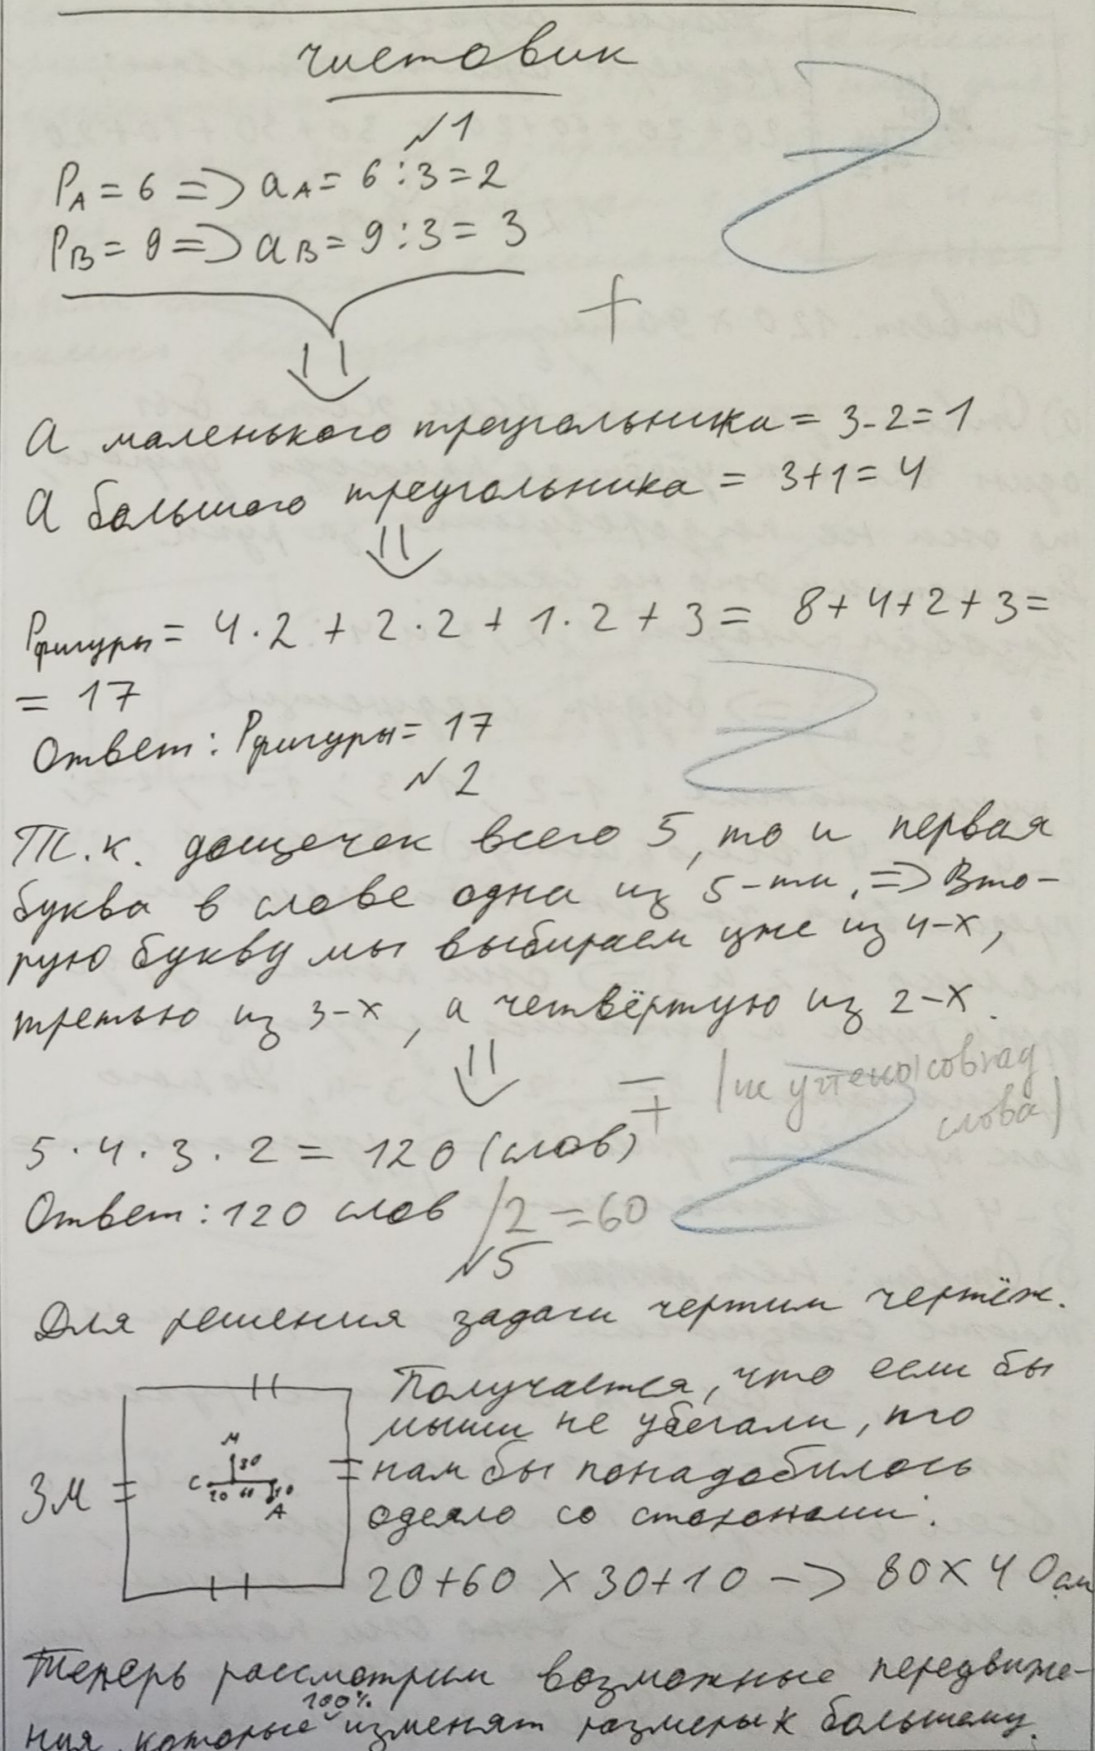 чистовик
№1
P_A = 6 => a_A = 6 : 3 = 2
P_B = 9 => a_B = 9 : 3 = 3
+
a маленького треугольника = 3-2=1
a большого треугольника = 3+1=4
Pфигуры = 4·2 + 2·2 + 1·2 + 3 = 8+4+2+3=
= 17
Ответ: Pфигуры = 17
№2
Т.к. дощечек всего 5, то и первая
буква в слове одна из 5-ти, => Вто-
рую букву мы выбираем уже из 4-х,
третью из 3-х, а четвёртую из 2-х.
(не учтено совпад
слова)
5·4·3·2 = 120 (слов)
Ответ: 120 слов /2 = 60
№5
Для решения задачи чертим чертёж.
Получается, что если бы
мыши не убегали, то
нам бы понадобилось
одеяло со сторонами:
3м
М
30
С
20 60 10
А
20+60 × 30+10 -> 80×40см
Теперь рассмотрим возможные передвиже-
100%
ния, которые изменят размеры к большему.